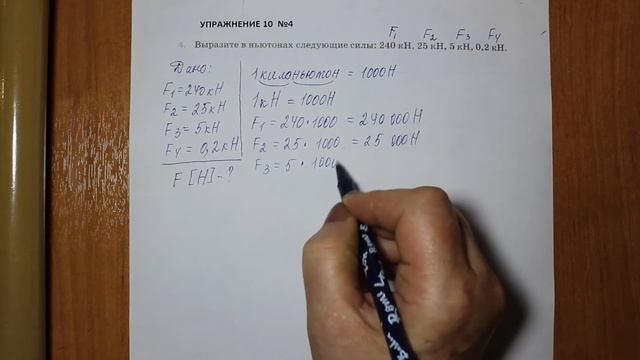 УПРАЖНЕНИЕ 10 №4
F₁ F₂ F₃ F₄
4. Выразите в ньютонах следующие силы: 240 кН, 25 кН, 5 кН, 0,2 кН.
Дано:
F₁ = 240 кН
F₂ = 25 кН
F₃ = 5 кН
F₄ = 0,2 кН
F [Н] - ?
1 килоньютон = 1000 Н
1 кН = 1000 Н
F₁ = 240 · 1000 = 240 000 Н
F₂ = 25 · 1000 = 25 000 Н
F₃ = 5 · 1000